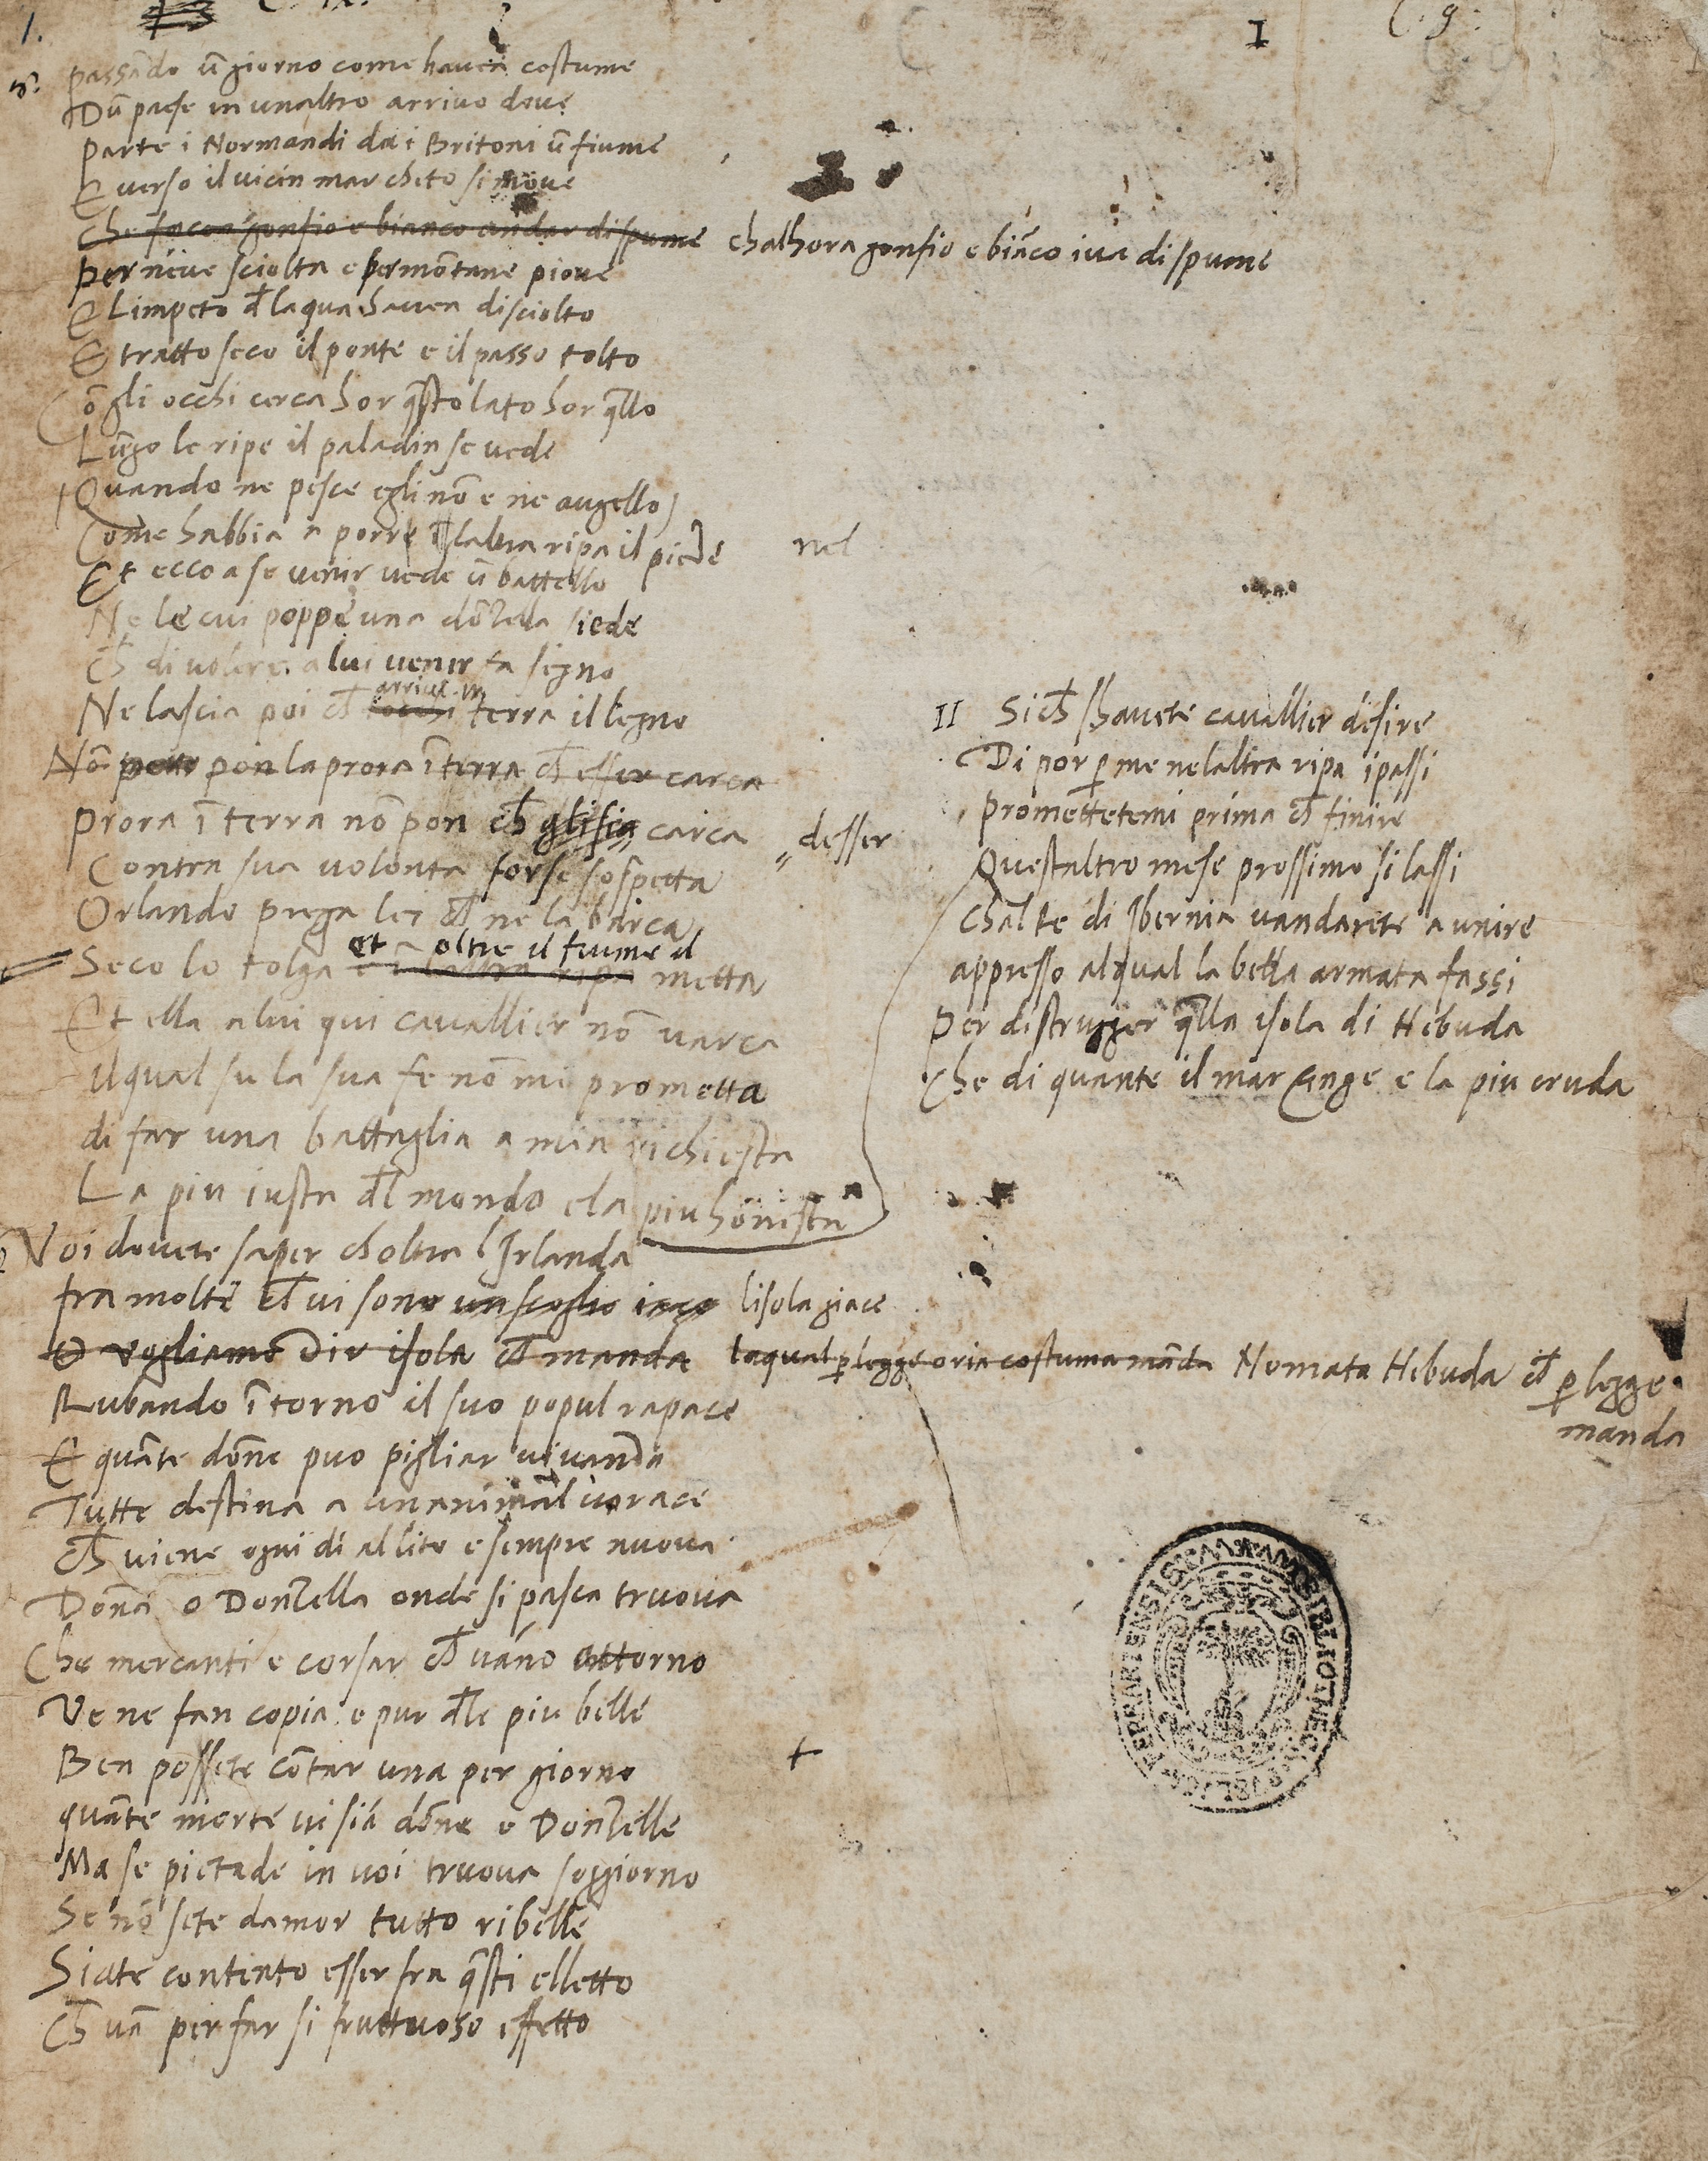 1.
I
C. 9:
Passãdo ũ giorno come havea costume
Dũ paese in unaltro arrivo dove
Parte i Normandi da i Britoni ũ fiume
E verso il vicin mar cheto si move
Che facea gonfio e bianco andar di spume chalhora gonfio e biãco iva di spume
Per neive sciolta e per mõtane piove
E Limpeto dl laqua havea disciolto
E tratto seco il ponte e il passo tolto
Cõ gli occhi cerca hor q̃sto lato hor q̃llo
Lũgo le ripe il paladin se vede
(Quando ne pesce egli nõ e ne augello)
Come habbia a porre ĩ laltra ripa il piede nel
Et ecco a se venir vede ũ battello
Ne le cui poppe una dõzella siede
ch di volere a lui venir fa segno
Ne lascia poi ch arrive in terra il legno
Nõ pon la prora ĩ terra ch esser carca
Prora ĩ terra nõ pon ch carca desser
Contra sua volonta forse sospetta
Orlando prega lei ch ne la barca
Seco lo tolga et oltre il fiume il metta
Et ella a lui qui cavallier nõ varca
ilqual su la sua fe nõ mi prometta
di far una battaglia a mia richiesta
La piu iusta dl mondo e la piu honesta
II Si ch shavete cavallier desire
Di por p me nelaltra ripa i passi
Promettetemi prima ch finire
Questaltro mese prossimo si lassi
Chal Re di Ibernia vandarete a unire
appresso alqual la bella armata fassi
Per distrugger q̃lla isola di Hebuda
Che di quante il mar cinge e la piu cruda
Voi dovete saper choltra lIrlanda
fra molte ch vi sono un scoglio iace lisola giace
O vogliamo Dir isola ch manda laqual p legge o ria costuma mãda Nomata Hebuda ch p legge
manda
Rubando ĩtorno il suo popul rapace
E quãte dõne puo pigliar vivanda
Tutte destina a un animal vorace
ch viene ogni di al lito e sempre nuova
Dõna o Donzella onde si pasca truova
Che mercanti e corsar ch vãno attorno
Ve ne fan copia e pur dle piu belle
Ben possete cõtar una per giorno
quãte morte vi siã dõne e Donzelle
Ma se pietade in voi truova soggiorno
Se nõ sete damor tutto ribelle
Siate contento esser fra q̃sti elletto
ch vã per far si fruttuoso effetto